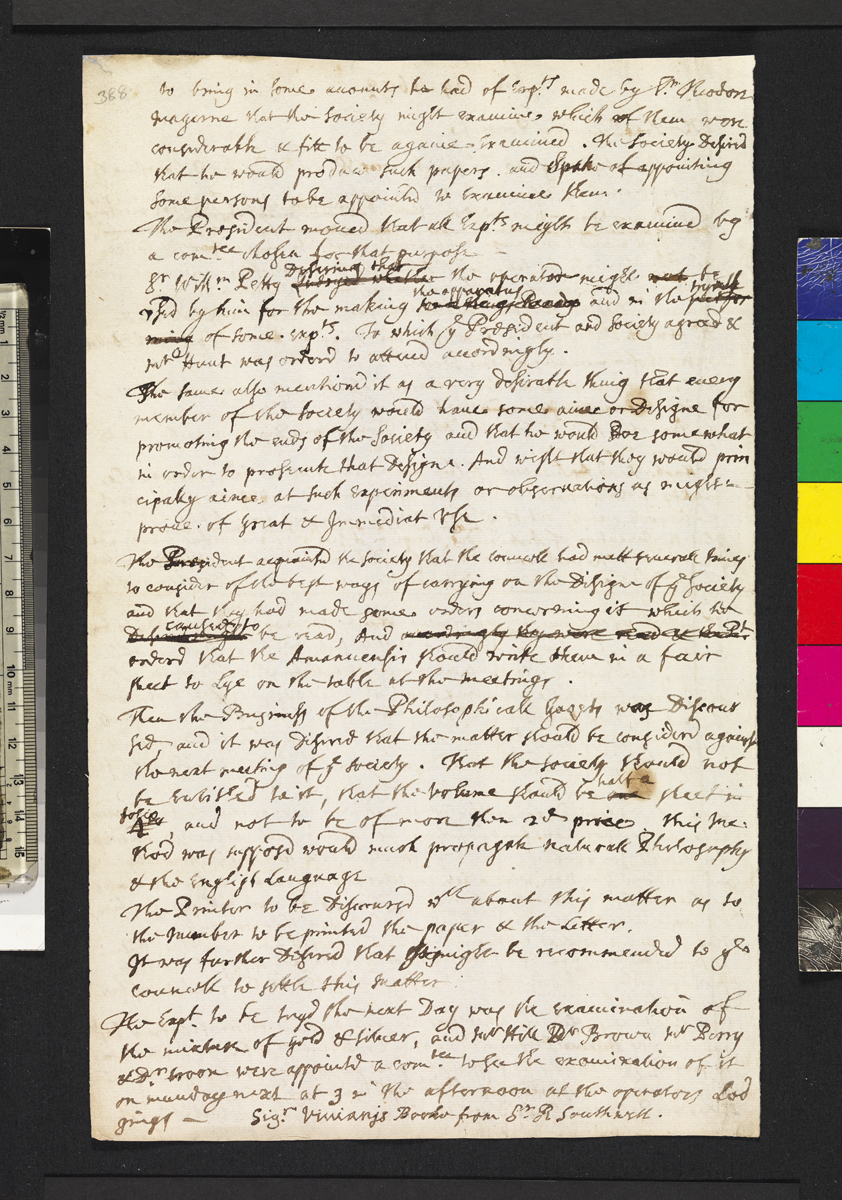 388
to bring in some accounts he had of Exp:ts made by Sr. Theodor
Mayerne that the Society might examine which of them were
considerable & fitt to be againe Examined. The Society Desired
that he would produce such papers. and Spake of appointing
some persons to be appointed to Examine them.
The President moved that all Exp:ts might be examined by
a com:tee chosen for that purpose
Sr Will:m Petty Desiring that the operator might not be
used by him for the making the apparatus and in the tryall
of some exp:ts. To which ye President and Society agreed &
Mr Hunt was orderd to attend accordingly.
The same also mentioned it as a very desirable thing that every
member of the Society would have some aime or Designe for
promoting the ends of the Society and that he would Doe somewhat
in order to prosecute that Designe. And wisht that they would prin
cipally aime at such experiments or observations as might
prove of great & Immediat Use.
The President acquainted the Society that the councell had mett severall times
to consider of the best ways of carrying on the Designe of ye Society
and that they had made some orders concerning it which he
caused to be read, And accordingly they were read & the Pt
orderd that the Amanuensis should write them in a fair
sheet to Lye on the table at the meetings.
Then the Business of the Philosophicall Gazets was Discour
sed, and it was Desired that the matter should be considerd against
the next meeting of ye Society. That the society should not
be entitled to it, that the volume should be one half a sheet in
folio, and not to be of more then 2d price this Me:
thod was supposd would much propagate naturall Philosophy
& the English Language
The Printer to be Discoursed wth about this matter as to
the Number to be printed the paper & the Letter.
It was further Desired that might be recommended to ye
councell to settle this matter
The Expt. to be tryd the next Day was the examination of
the mixture of Gold & silver, and Mr Hill Dr Brown Mr Perry
& Dr Croon were appointed a com:tee to see the examination of it
on munday next at 3 in the afternoon at the operators Lod
gings — Sigr. Vivianis Booke from Sr. R Southwell.